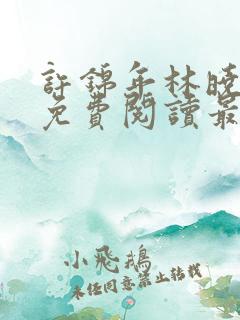 許錦年林曉
免費閱讀最
小飛鵝
未經同意禁止轉載